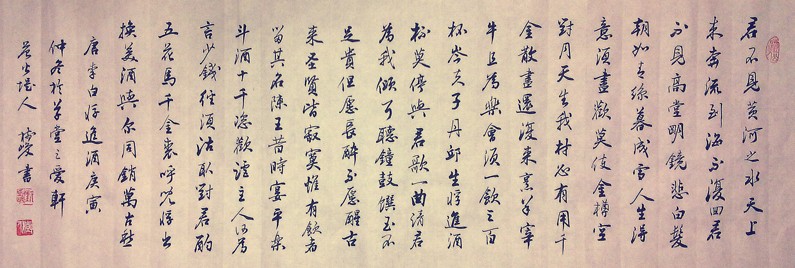 君不見黃河之水天上
來奔流到海不復回君
不見高堂明鏡悲白髮
朝如青絲暮成雪人生得
意須盡歡莫使金樽空
對月天生我材必有用千
金散盡還復來烹羊宰
牛且爲樂會須一飲三百
杯岑夫子丹邱生將進酒
杯莫停與君歌一曲請君
爲我傾耳聽鐘鼓饌玉不
足貴但愿長醉不愿醒古
來圣賢皆寂寞惟有飲者
留其名陳王昔時宴平樂
斗酒十千恣歡謔主人何爲
言少錢徑須沽取對君酌
五花馬千金裘呼兒將出
換美酒與尔同銷萬古愁
唐李白將進酒庚寅
仲冬於草堂之愛軒
人 書